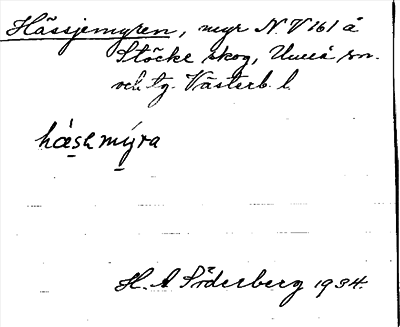 Hässjemyren, myr N.V 161 å
Stöcke skog, Umeå sn.
och tg. Västerb. l.
hæ̀sɩmýra
H. A Söderberg 1934.